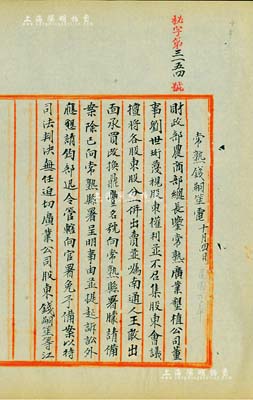 上海陽明拍賣
秘字第三一五四號
常熟錢嗣笙電十月四日
財政部農商部總長鑒常熟廣業墾植公司董
事劉世珩蔑視股東權利並不召集股東會議
擅將各股東股分一併出賣並嗾南通人王敬出
面承買改換鼎豐名號向常熟縣署朦請備
案除已向常熟縣署呈明事由並提起訴訟外
應懇請鈞部迅令管轄向官署免予備案以待
司法判決無任迫切廣業公司股東錢嗣笙等江